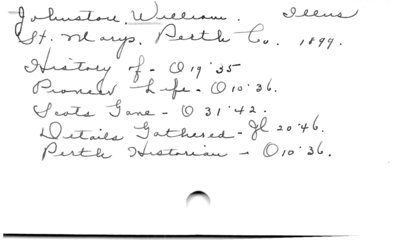 Johnston, William. Illus
St. Marys. Perth Co. 1899.
History of - O 19 '35
Pioneer Life - O 10 '36.
Scots Gone - O 31 '42.
Details Gathered - Jl 20 '46.
Perth Historian - O 10 '36.